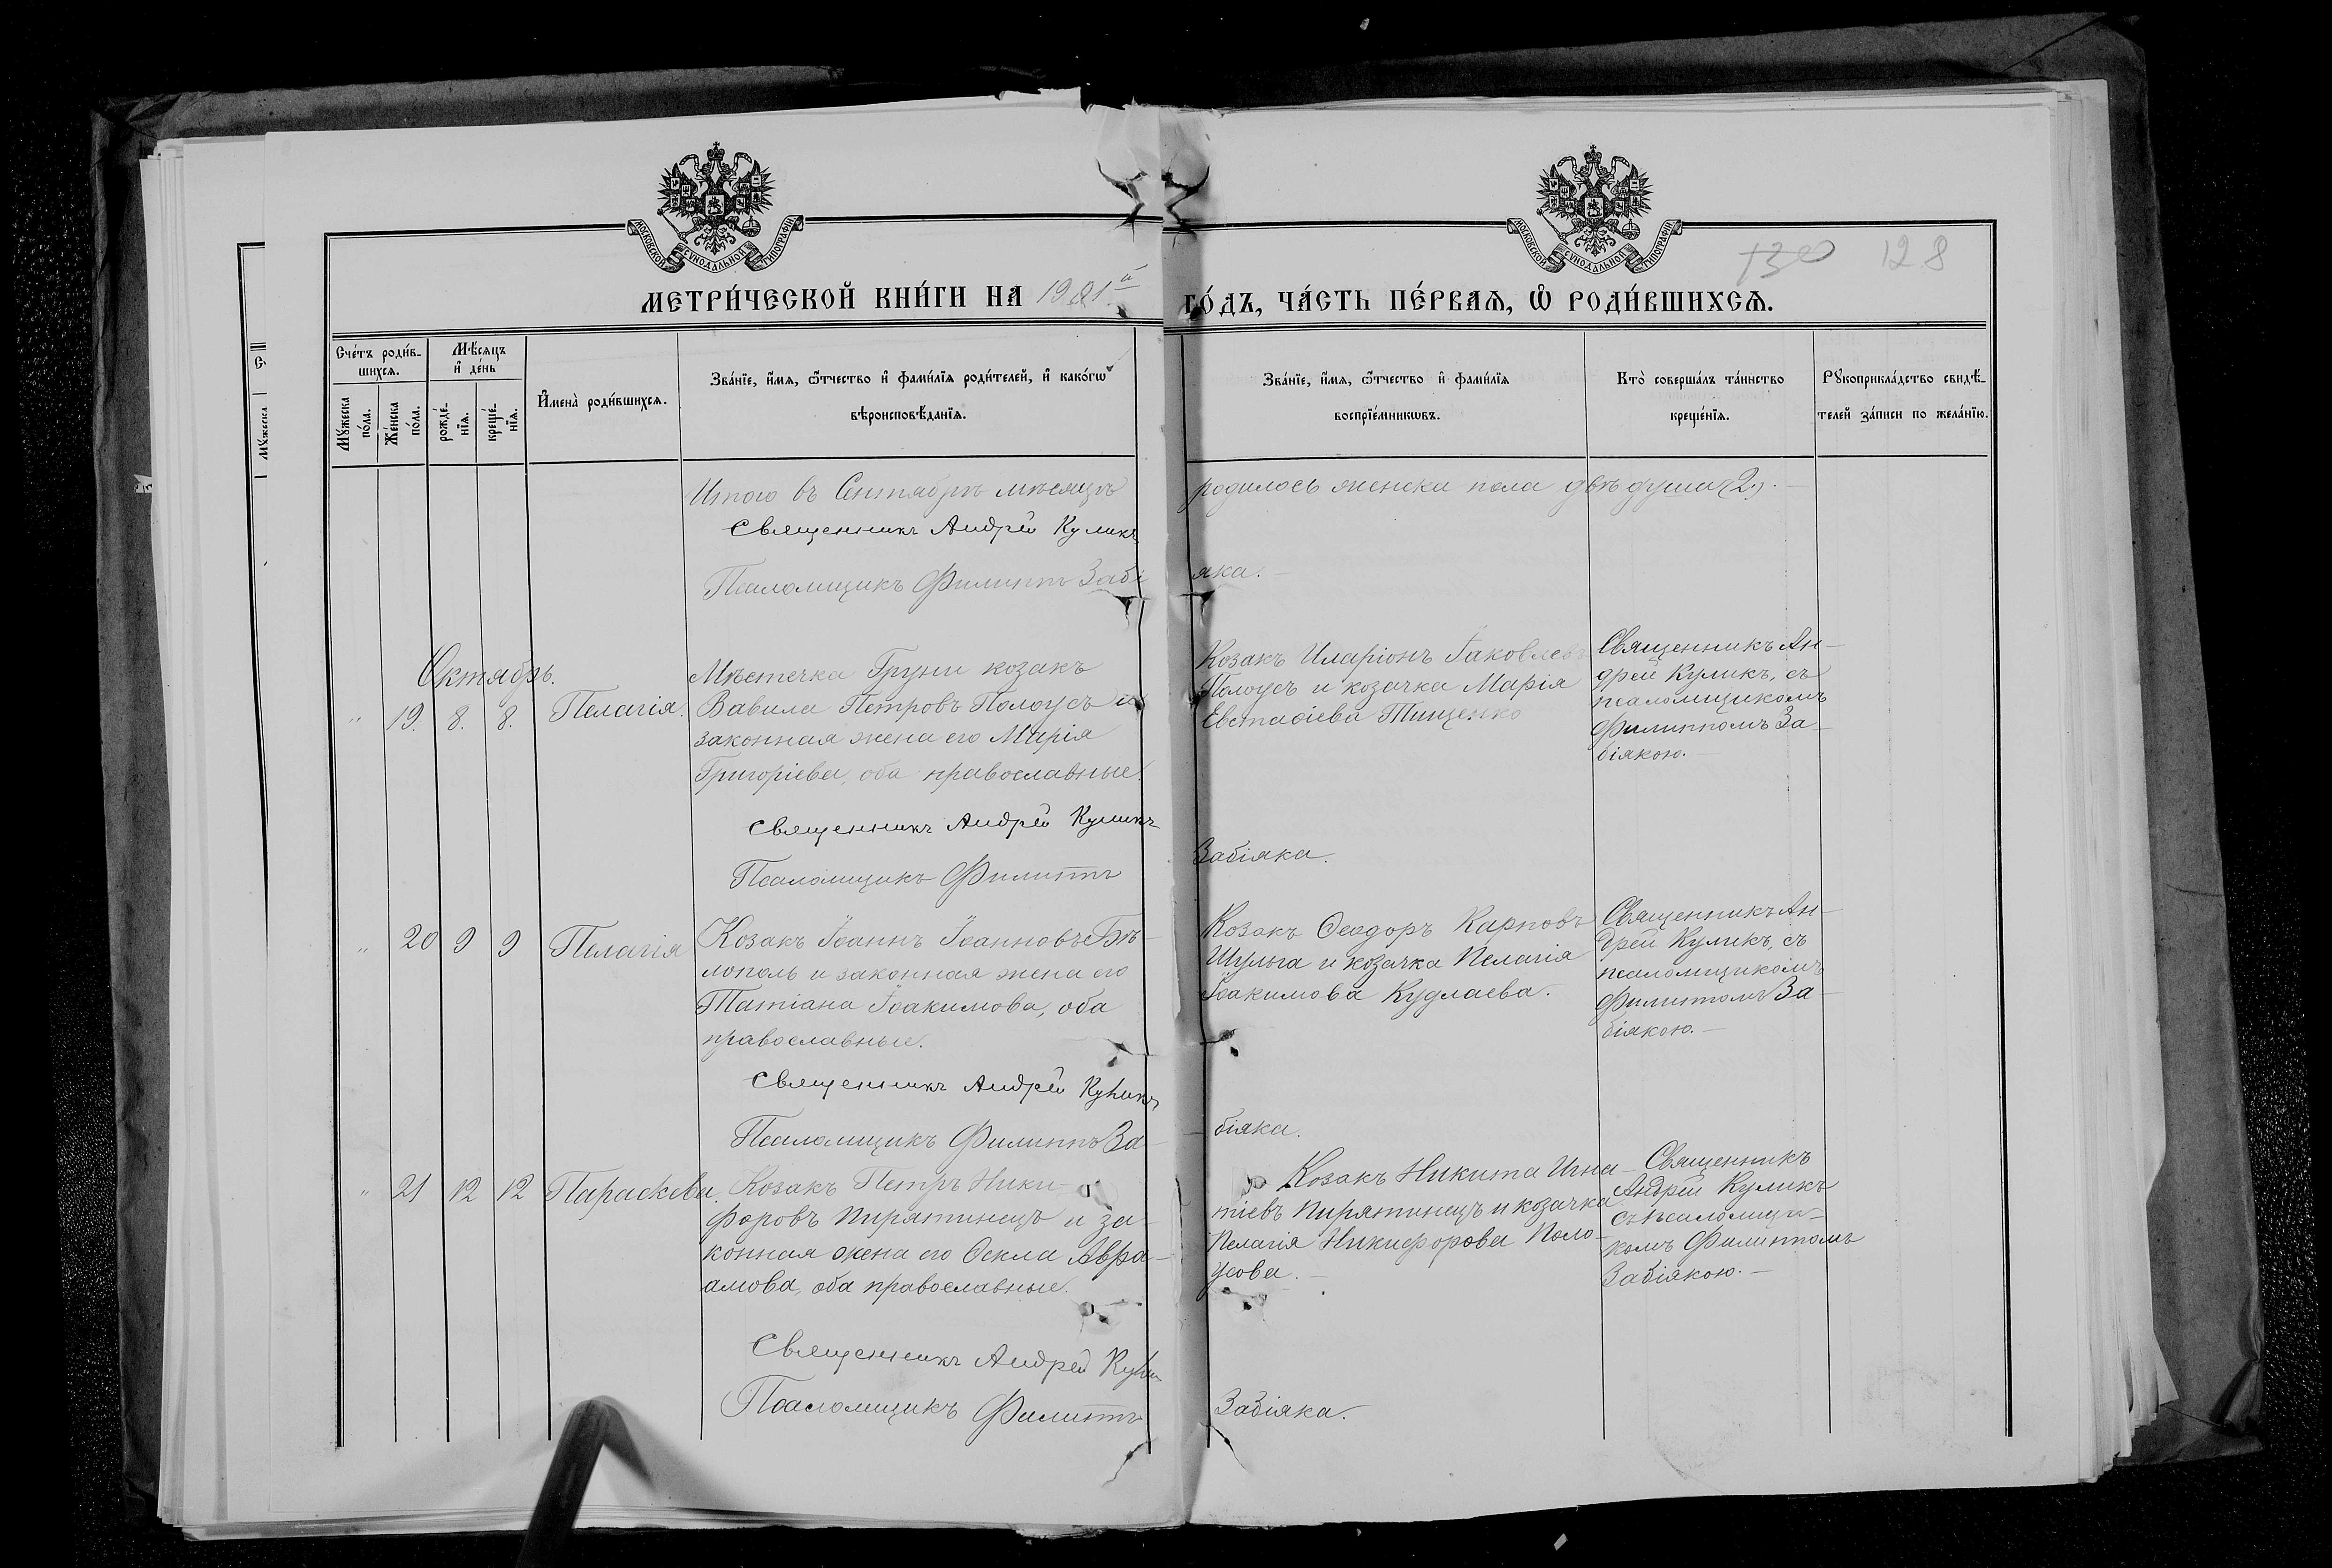 МОСКОВСКОЙ СѴНОДАЛЬНОЙ ТИПОГРАФІИ
МОСКОВСКОЙ СѴНОДАЛЬНОЙ ТИПОГРАФІИ
130 128
МЕТРИ́ЧЕСКОЙ КНИ́ГИ НА 1901й
ГО́ДЪ, ЧА́СТЬ ПЕ́РВАѦ, Ѡ РОДИ́ВШИХСѦ.
Сче́тъ роди́в-
шихсѧ.
Мꙋ́жеска
по́ла.
Же́нска
по́ла.
Мѣ́сѧцъ
и де́нь
рожде́-
нїѧ.
креще́-
нїѧ.
И҆мена̀ роди́вшихсѧ.
Зва́нїе, и҆́мѧ, ѻ҆́тчество и҆ фами́лїѧ роди́телей, и҆ како́гѡ
вѣроисповѣ́данїѧ.
Зва́нїе, и҆́мѧ, ѻ҆́тчество и҆ фами́лїѧ
воспрїе́мникѡвъ.
Кто̀ соверша́лъ та́инство
креще́нїѧ.
Рꙋкоприкла́дство свидѣ́-
телей за́писи по жела́нїю.
Мꙋжеска
Итого въ Сентябрѣ мѣсяцѣ
родилось женска пола двѣ души (2).
Священникъ Андрей Куликъ
Псаломщикъ Филиппъ Забі
яка.
Октябрь.
" 19. 8. 8. Пелагія.
Мѣстечка Груни козакъ
Вавила Петровъ Полоусъ и
законная жена его Марія
Григоріева, оба православные.
Козакъ Иларіонъ Іаковлевъ
Полоусъ и козачка Марія
Евстафіева Тищенко
Священникъ Ан-
дрей Куликъ, съ
псаломщикомъ
Филиппомъ За-
біякою.
Священникъ Андрей Куликъ
Псаломщикъ Филиппъ
Забіяка.
" 20 9 9 Пелагія
Козакъ Іоаннъ Іоанновъ Бѣ-
лополь и законная жена его
Татіана Іоакимова, оба
православные.
Козакъ Ѳеодоръ Карповъ
Шульга и козачка Пелагія
Іоакимова Кудлаева.
Священникъ Ан-
дрей Куликъ, съ
псаломщикомъ
Филиппомъ За-
біякою.
Священникъ Андрей Куликъ
Псаломщикъ Филиппъ За-
біяка.
" 21 12 12 Параскева.
Козакъ Петръ Ники-
форовъ Пирятинецъ и за-
конная жена его Ѳекла Авра-
амова, оба православные.
Козакъ Никита Игна-
тіевъ Пирятинецъ и козачка
Пелагія Никифорова Поло-
усова.
Священникъ
Андрей Куликъ
съ псаломщи-
комъ Филиппомъ
Забіякою.
Священникъ Андрей Кули
Псаломщикъ Филиппъ
Забіяка.